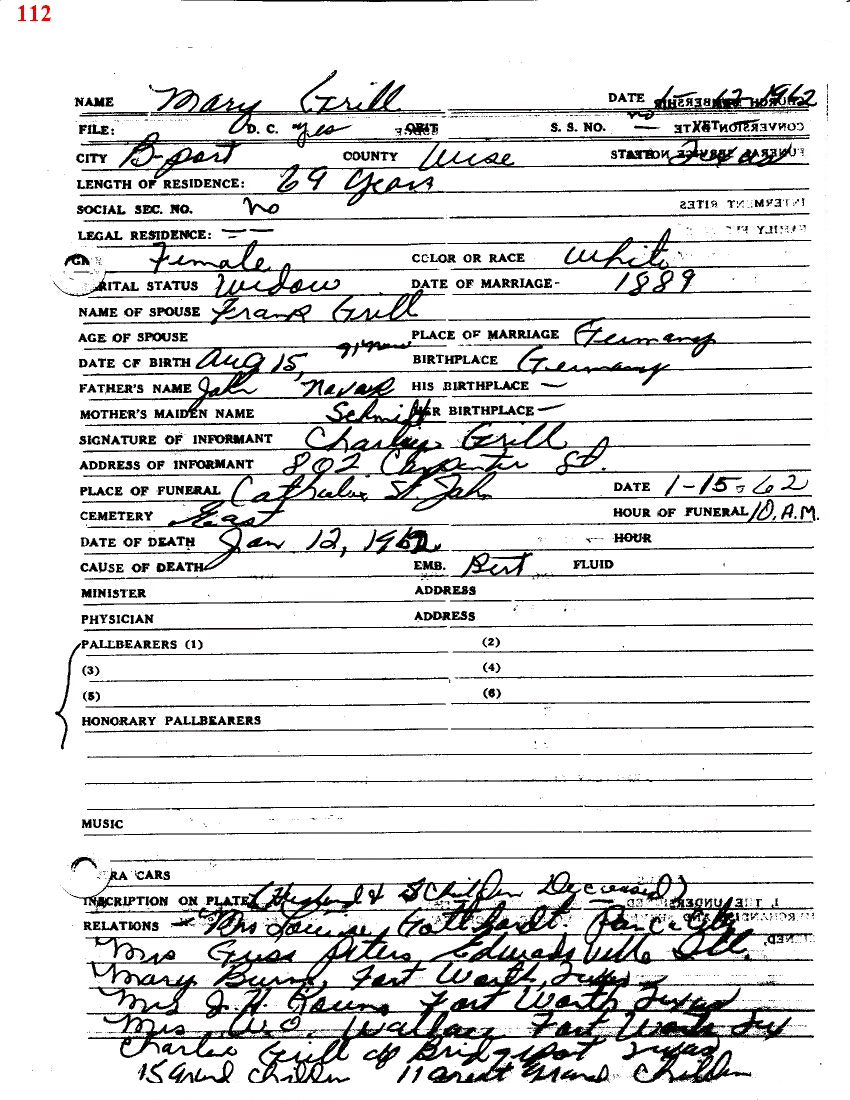 112
NAME Mary Grill DATE 1962
FILE: D. C. yes S. S. NO. —
CITY B-port COUNTY Wise STATE Texas
LENGTH OF RESIDENCE: 69 Years
SOCIAL SEC. NO. no
LEGAL RESIDENCE: — —
Female COLOR OR RACE White
RITAL STATUS Widow DATE OF MARRIAGE- 1889
NAME OF SPOUSE Frank Grill
AGE OF SPOUSE PLACE OF MARRIAGE Germany
DATE OF BIRTH Aug 15, BIRTHPLACE Germany
FATHER'S NAME John HIS BIRTHPLACE —
MOTHER'S MAIDEN NAME Schmitt HER BIRTHPLACE —
SIGNATURE OF INFORMANT Charley Grill
ADDRESS OF INFORMANT 802 Carpenter St.
PLACE OF FUNERAL Catholic St John DATE 1-15-62
CEMETERY East HOUR OF FUNERAL 10, A.M.
DATE OF DEATH Jan 12, 1962 HOUR
CAUSE OF DEATH EMB. Bert FLUID
MINISTER ADDRESS
PHYSICIAN ADDRESS
PALLBEARERS (1) (2)
(3) (4)
(5) (6)
HONORARY PALLBEARERS
MUSIC
RA CARS
INSCRIPTION ON PLATE (Husband & Children Deceased)
RELATIONS — Mrs Louise Gotthardt. Ponca City
Mrs Guss Peters, Edwardsville Ill.
Mary Burns, Fort Worth, Texas
Mrs J. H. Fort Worth Texas
Mrs W.O. Wallace Fort Worth Tex
Charlie Grill of Bridgeport Texas
15 grand Children 11 Great Grand Children